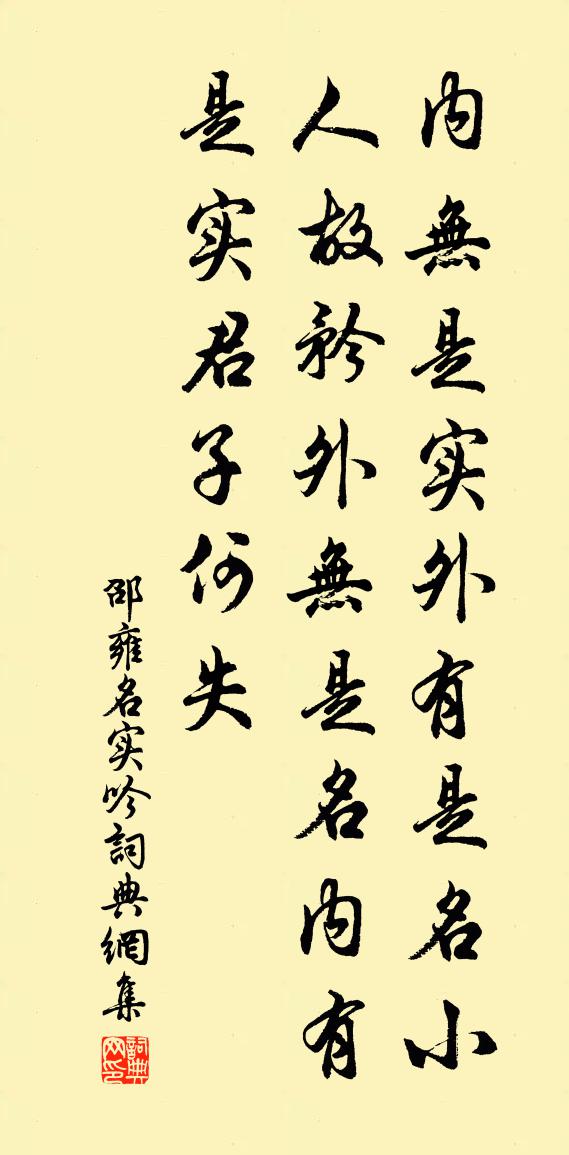 内無是实外有是名小
人故矜外無是名内有
是实君子何失
邵雍名实吟詞典網集
詞典网印